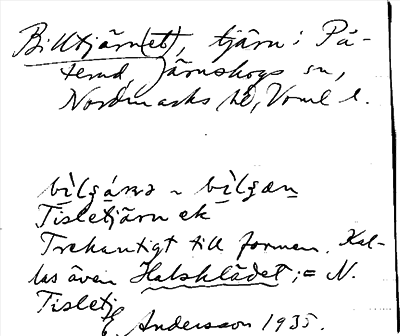 Billtjärn(et), tjärn i På-
terud, Järnskogs sn,
Nordmarks hd, Vrml l.
bìlgánə ~ bìlgæn
Tisletjärn ek
Trekantigt till formen. Kal-
las även Halsklädet; = N.
Tisletj
E. Andersson 1935.